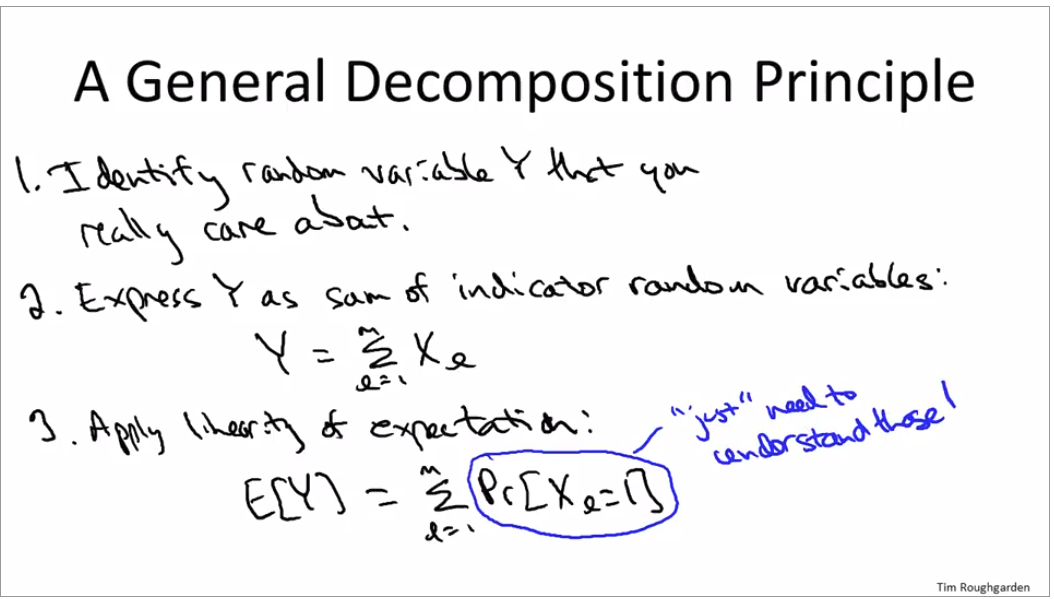 A General Decomposition Principle
1. Identify random variable Y that you
really care about.
2. Express Y as sum of indicator random variables:
Y = Σ_{l=1}^{m} X_l
3. Apply linearity of expectation:
"just" need to
understand these!
E[Y] = Σ_{l=1}^{m} Pr[X_l=1]
Tim Roughgarden